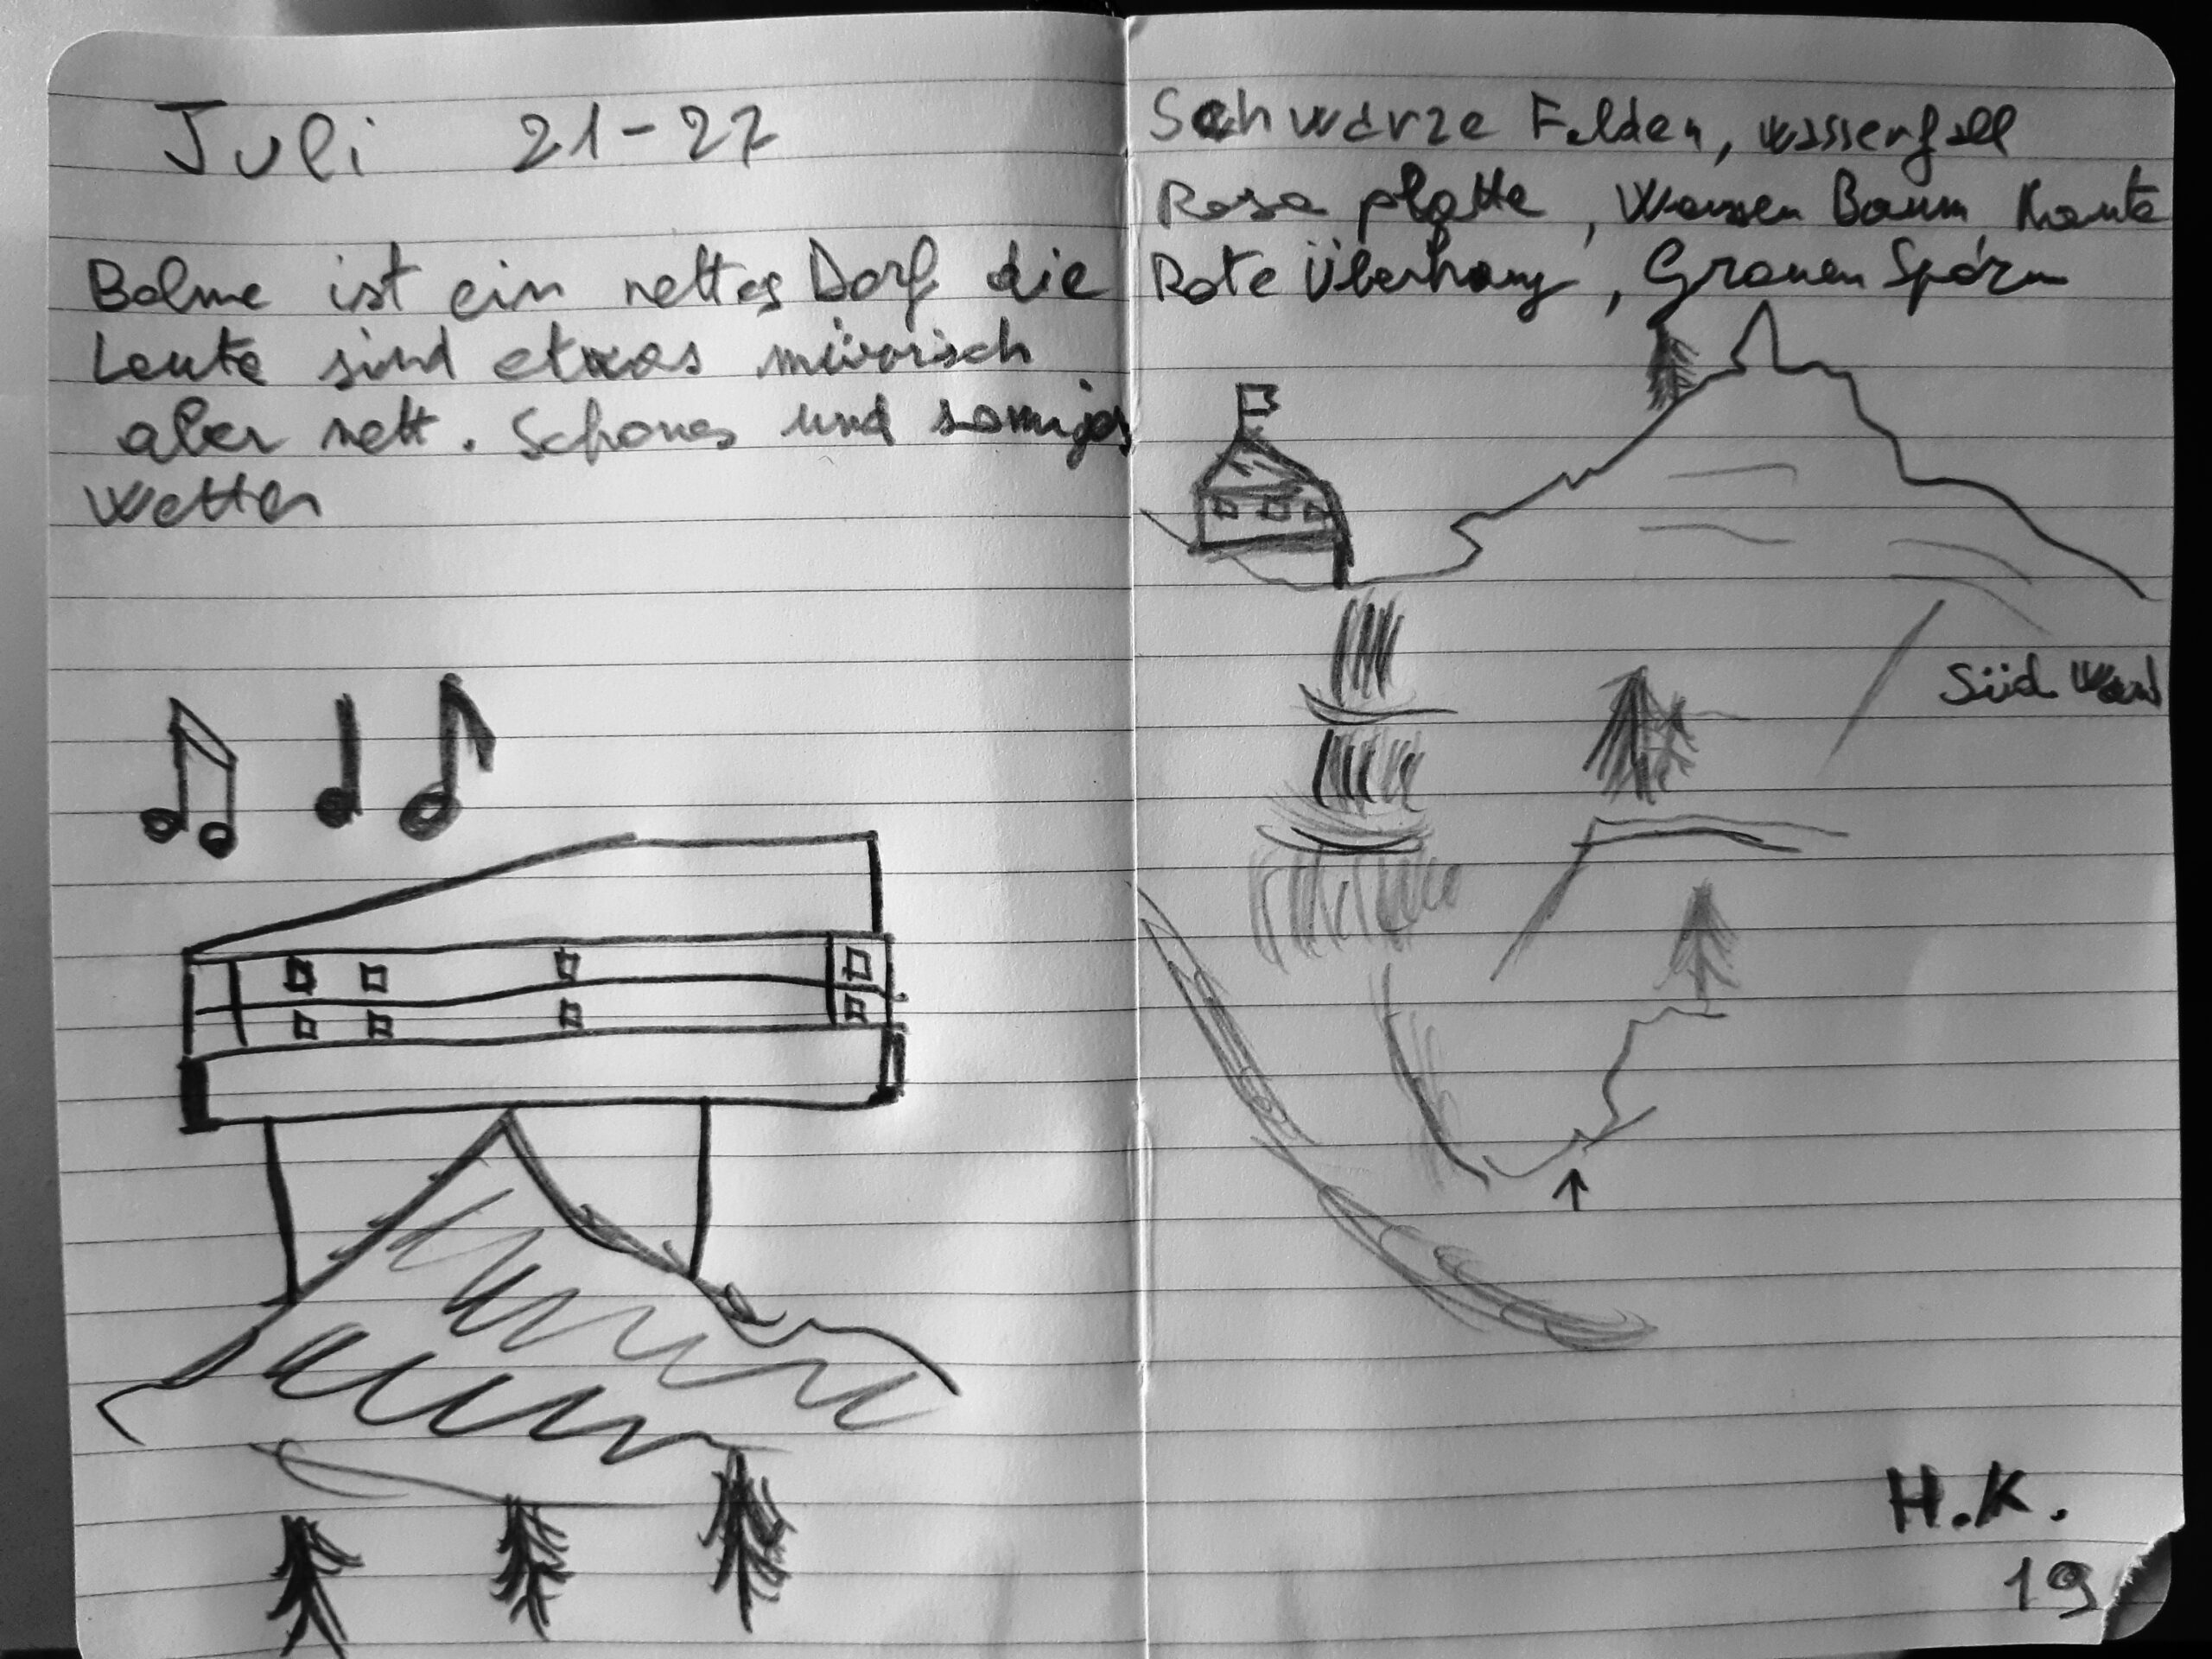 Juli 21-27
Balme ist ein nettes Dorf die
Leute sind etwas mürrisch
aber nett. Schones und sonniges
Wetter
Schwarze Felden, wasserfall
Rosa platte, Baum Kante
Rote Überhang, Grauen Sporn
Süd Wand
H.K.
19